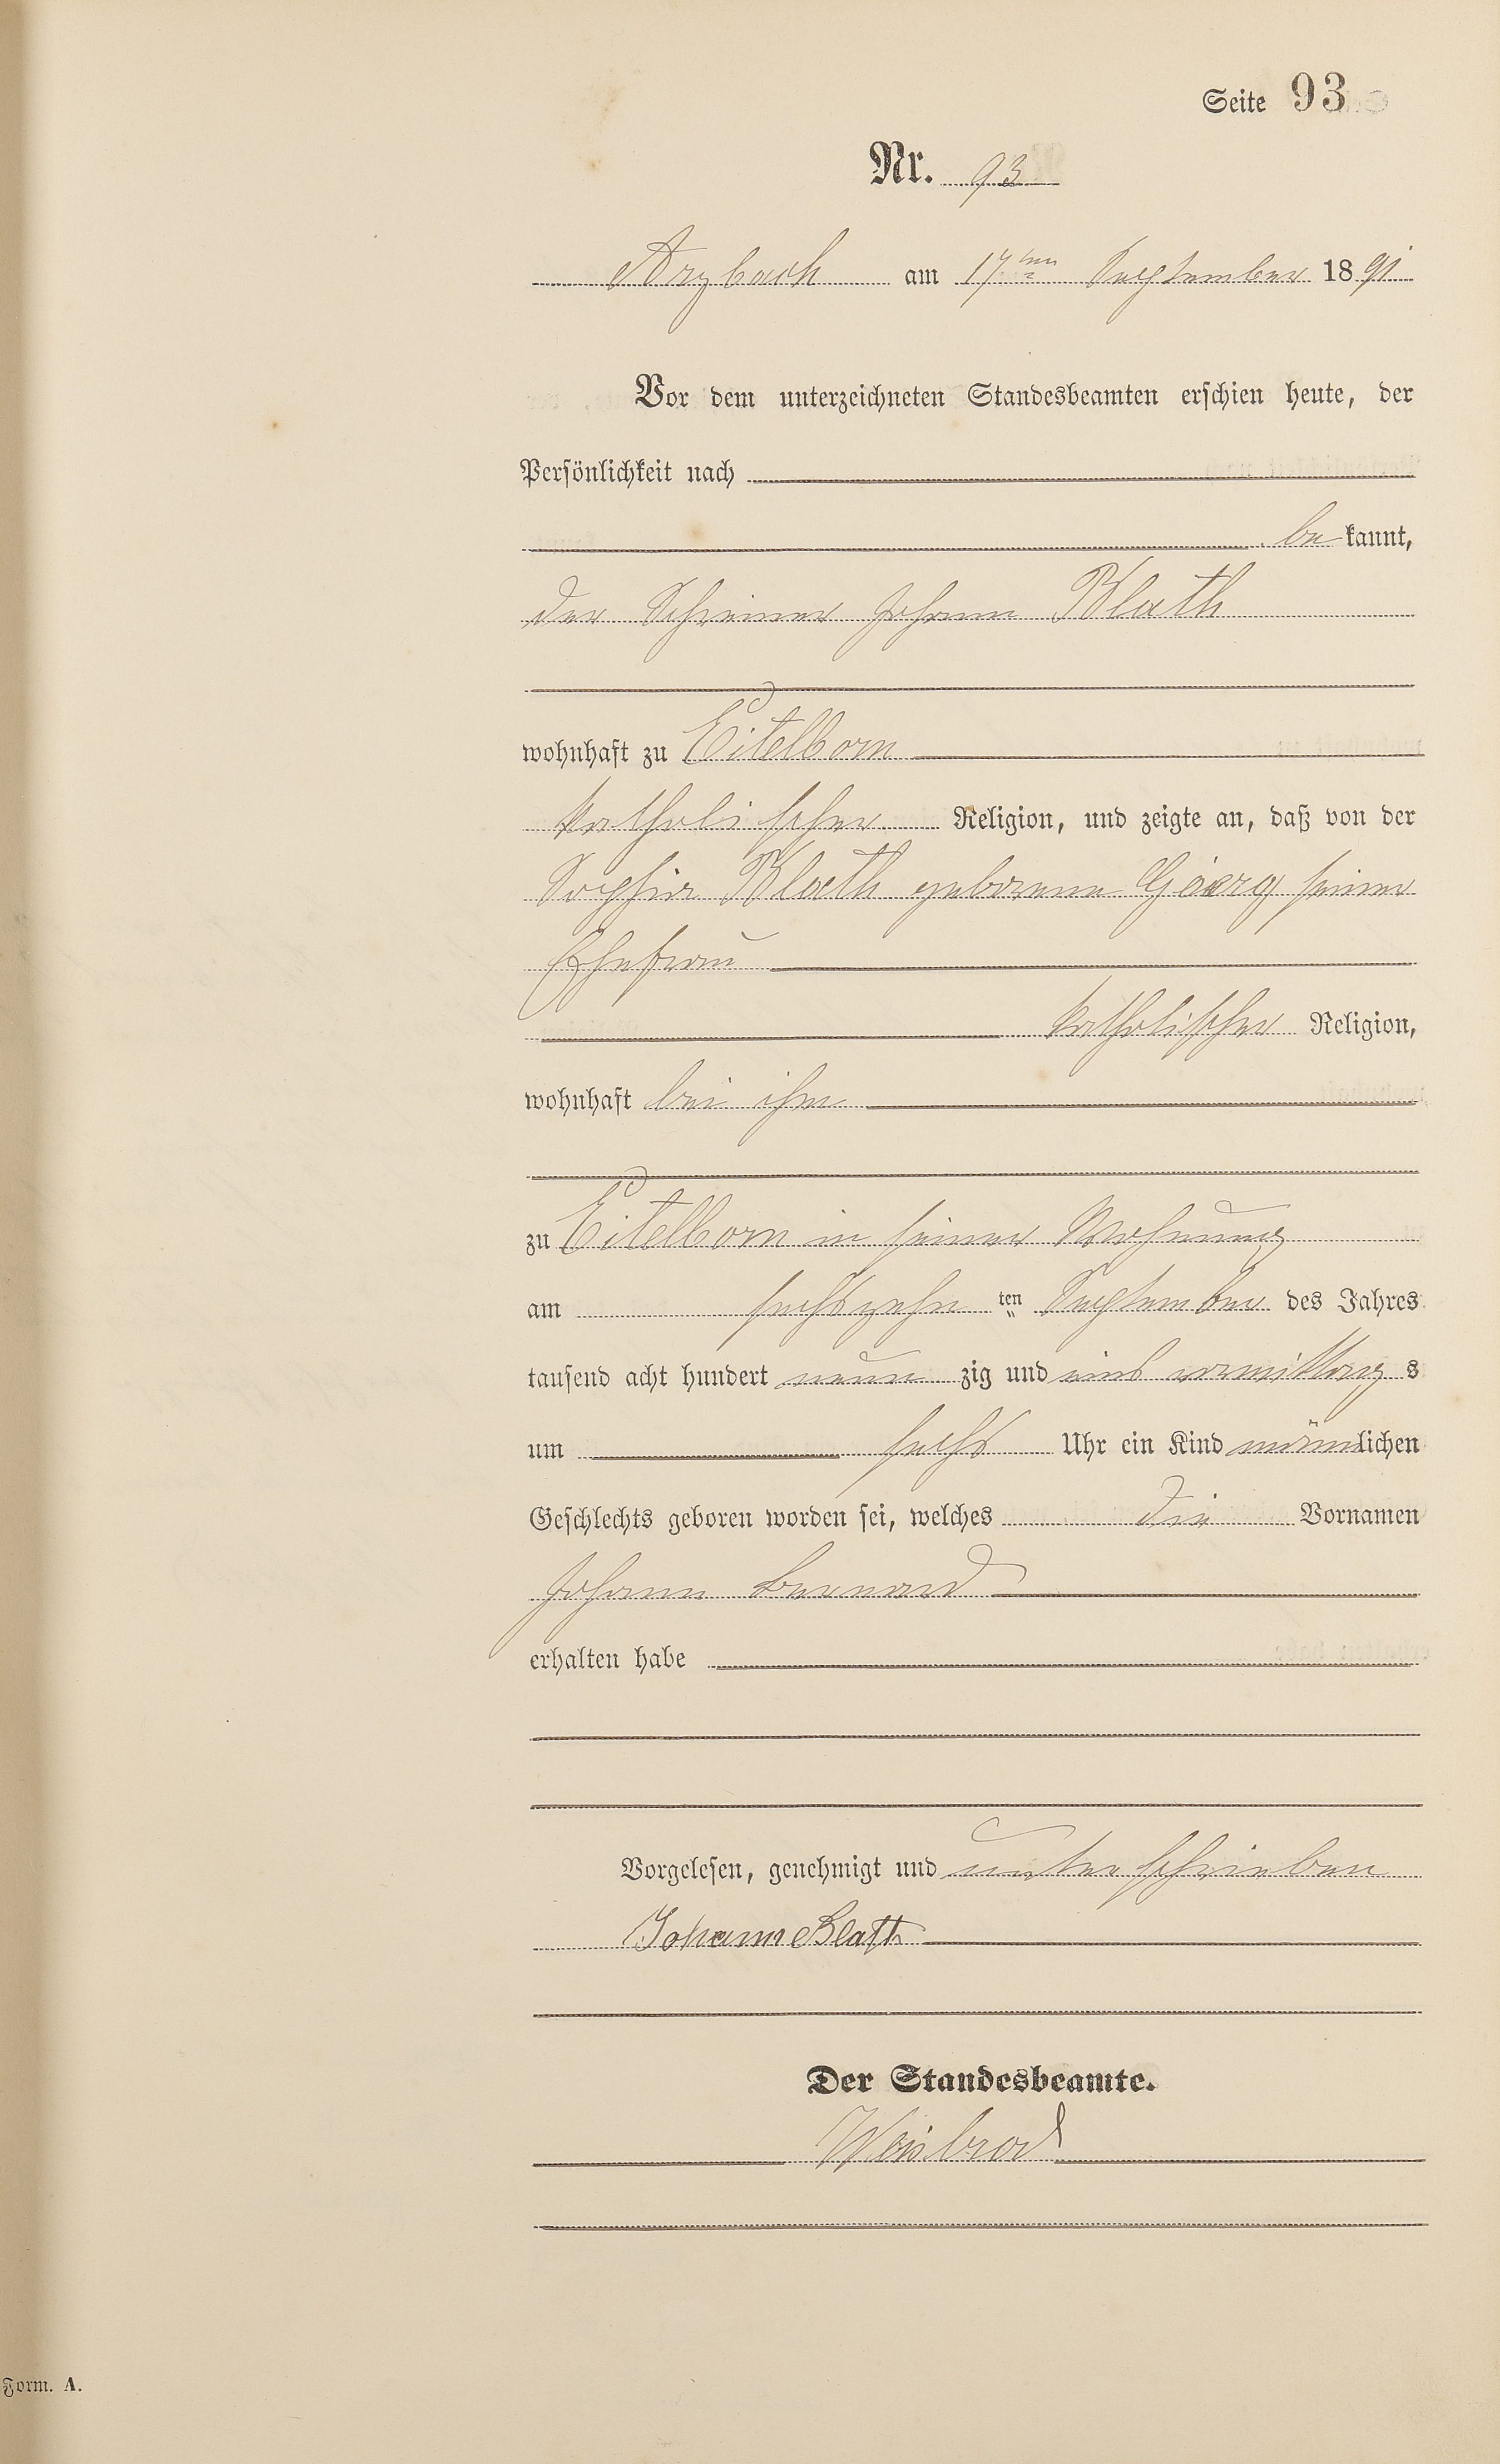 Seite 93
Nr. 93
Arzbach am 17ten September 1891
Vor dem unterzeichneten Standesbeamten erschien heute, der
Persönlichkeit nach
bekannt,
der Schreiner Johann Blath
wohnhaft zu Eitelborn
katholischer Religion, und zeigte an, daß von der
Sophie Blath geborene Görg seiner
Ehefrau
katholischer Religion,
wohnhaft bei ihm
zu Eitelborn in seiner Wohnung
am sechszehnten September des Jahres
tausend acht hundert neunzig und eins vormittags
um sechs Uhr ein Kind männlichen
Geschlechts geboren worden sei, welches die Vornamen
Johann Bernard
erhalten habe
Vorgelesen, genehmigt und unterschrieben
Johann Blath
Der Standesbeamte.
Weisbrod
Form. A.